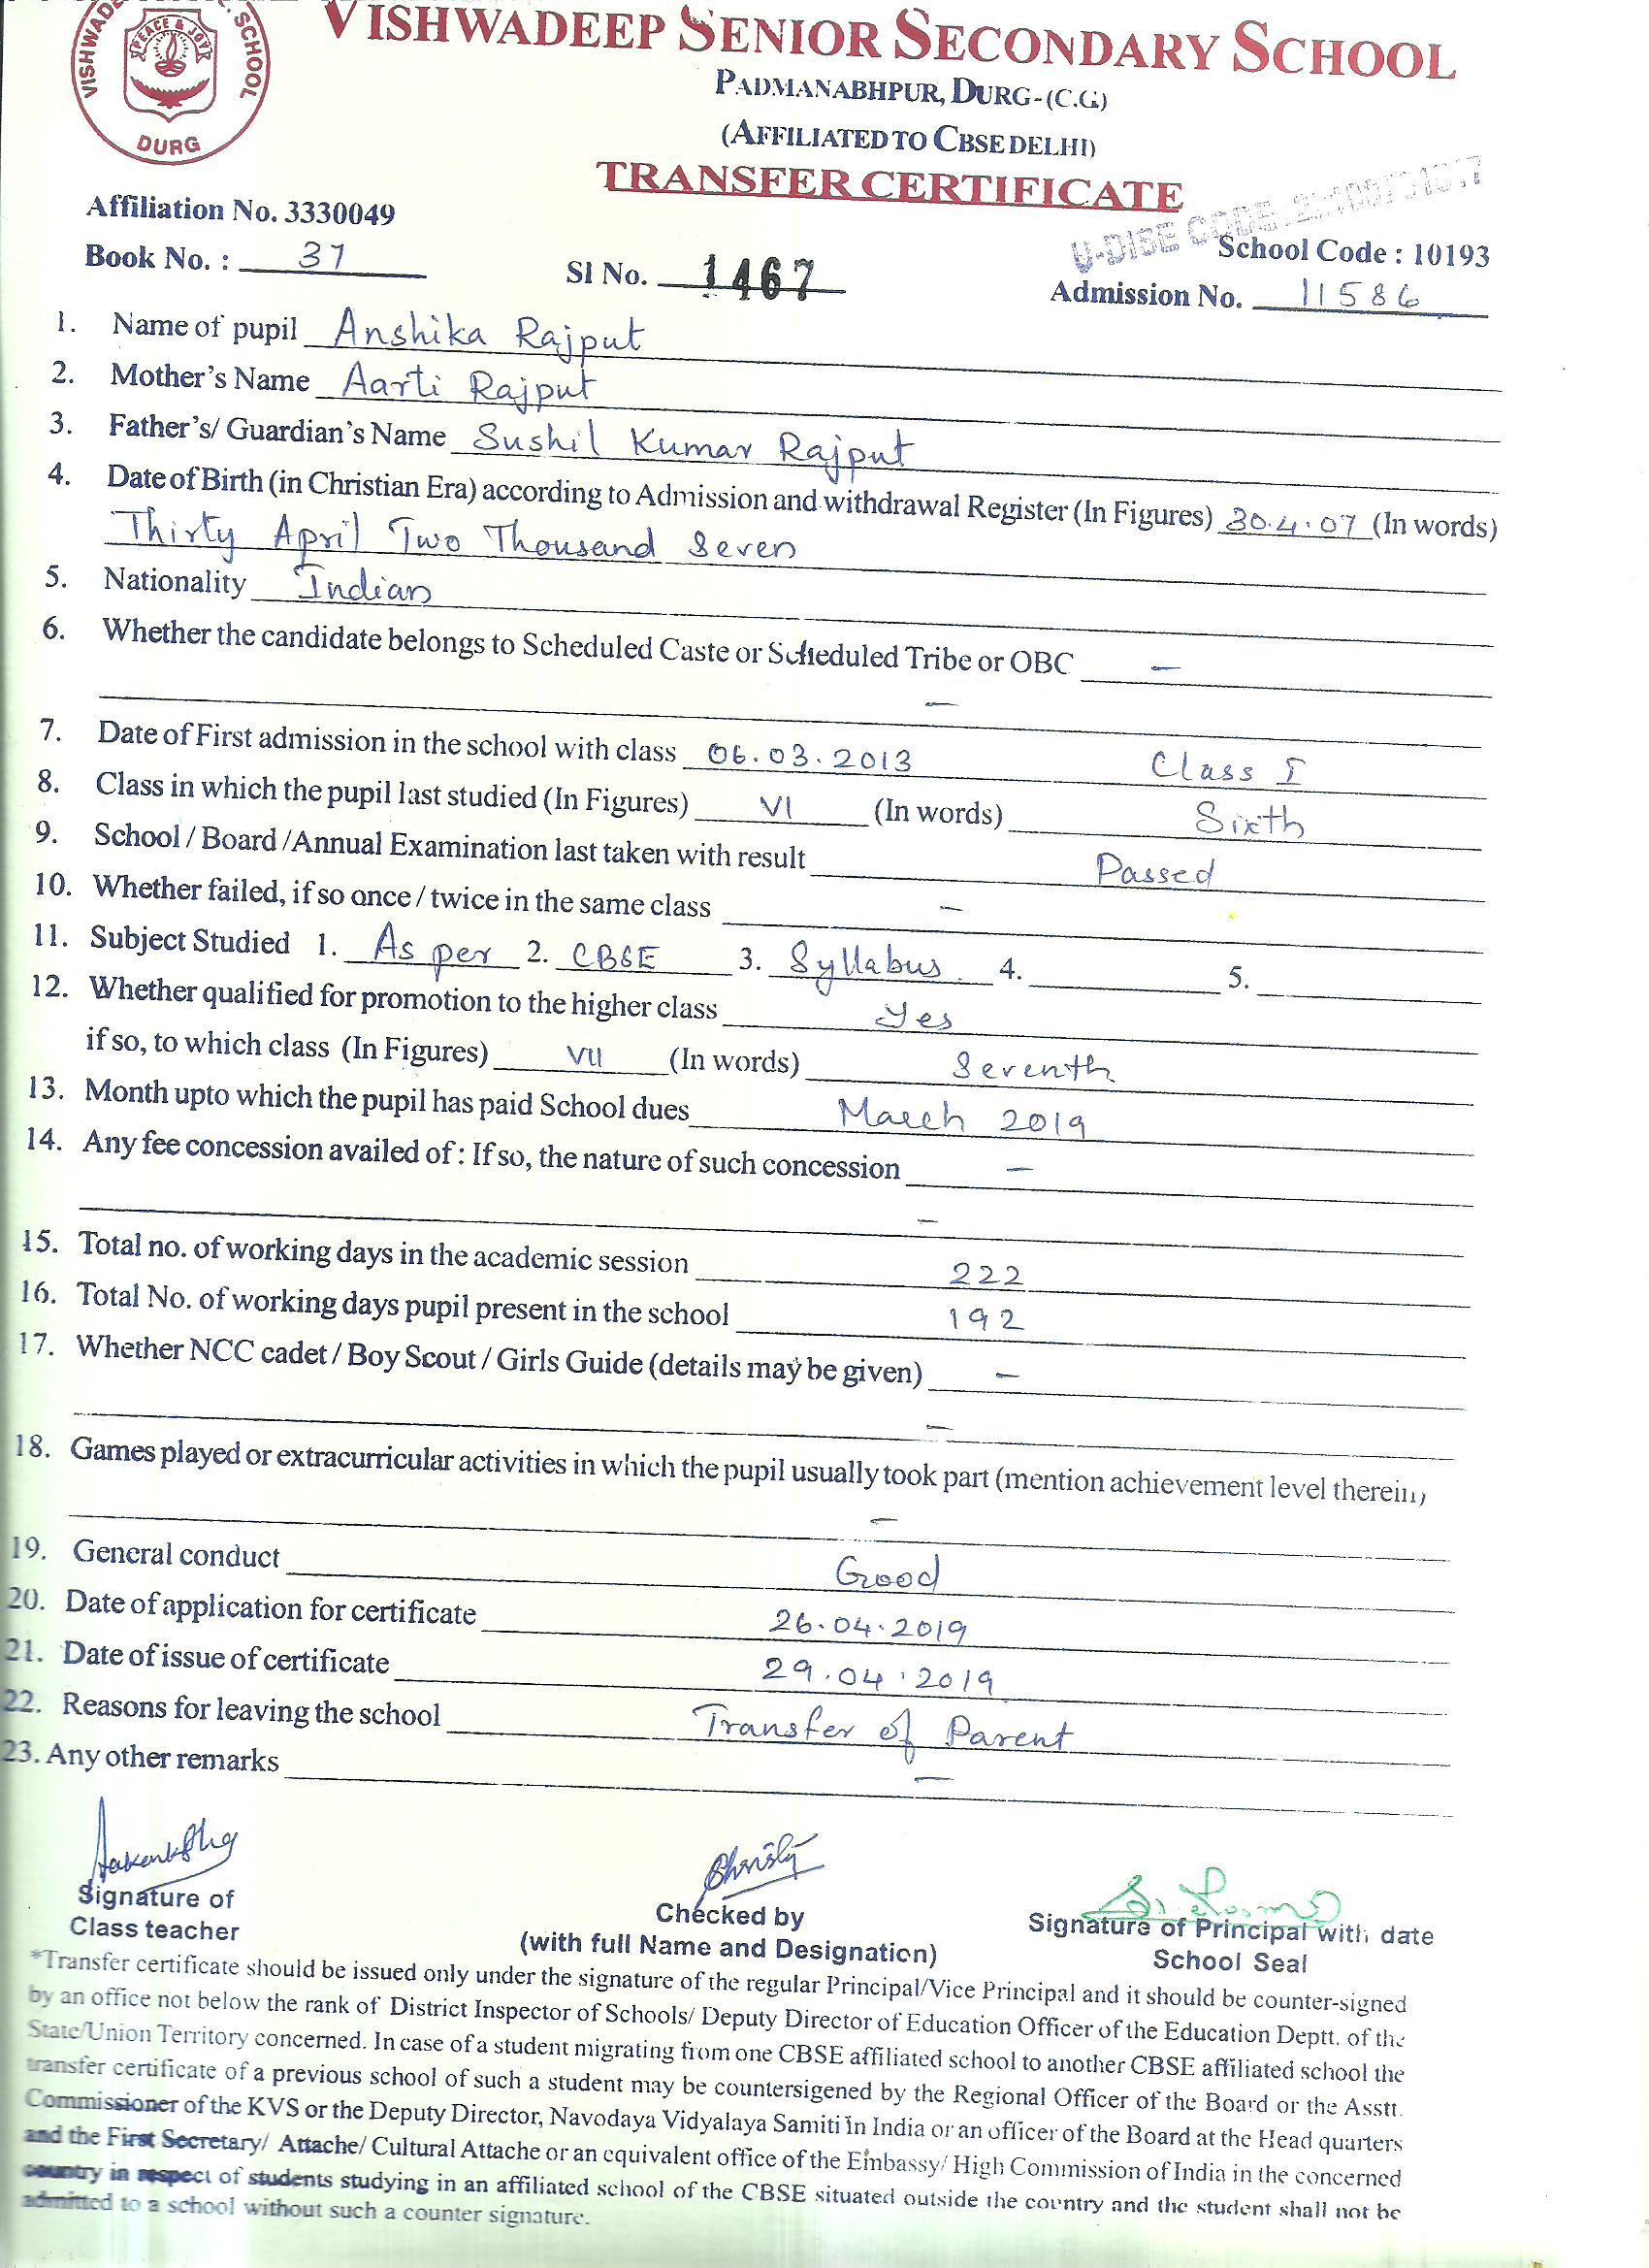 VISHWADEEP SCHOOL
PEACE & JOY
DURG
VISHWADEEP SENIOR SECONDARY SCHOOL
PADMANABHPUR, DURG-(C.G.)
(AFFILIATED TO CBSE DELHI)
TRANSFER CERTIFICATE
U-DISE CODE
Affiliation No. 3330049
School Code : 10193
Book No. : 37
Sl No. 1467
Admission No. 11586
1. Name of pupil Anshika Rajput
2. Mother's Name Aarti Rajput
3. Father's/ Guardian's Name Sushil Kumar Rajput
4. Date of Birth (in Christian Era) according to Admission and withdrawal Register (In Figures) 30.4.07 (In words)
Thirty April Two Thousand Seven
5. Nationality Indian
6. Whether the candidate belongs to Scheduled Caste or Scheduled Tribe or OBC –
–
7. Date of First admission in the school with class 06.03.2013 Class I
8. Class in which the pupil last studied (In Figures) VI (In words) Sixth
9. School / Board /Annual Examination last taken with result Passed
10. Whether failed, if so once / twice in the same class –
11. Subject Studied 1. As per 2. CBSE 3. Syllabus. 4. 5.
12. Whether qualified for promotion to the higher class Yes
if so, to which class (In Figures) VII (In words) Seventh
13. Month upto which the pupil has paid School dues March 2019
14. Any fee concession availed of : If so, the nature of such concession –
–
15. Total no. of working days in the academic session 222
16. Total No. of working days pupil present in the school 192
17. Whether NCC cadet / Boy Scout / Girls Guide (details may be given) –
–
18. Games played or extracurricular activities in which the pupil usually took part (mention achievement level therein)
–
19. General conduct Good
20. Date of application for certificate 26.04.2019
21. Date of issue of certificate 29.04.2019
22. Reasons for leaving the school Transfer of Parent
23. Any other remarks –
Signature of
Class teacher
Checked by
(with full Name and Designation)
Signature of Principal with date
School Seal
*Transfer certificate should be issued only under the signature of the regular Principal/Vice Principal and it should be counter-signed
by an office not below the rank of District Inspector of Schools/ Deputy Director of Education Officer of the Education Deptt. of the
State/Union Territory concerned. In case of a student migrating from one CBSE affiliated school to another CBSE affiliated school the
transfer certificate of a previous school of such a student may be countersigened by the Regional Officer of the Board or the Asstt.
Commissioner of the KVS or the Deputy Director, Navodaya Vidyalaya Samiti in India or an officer of the Board at the Head quarters
and the First Secretary/ Attache/ Cultural Attache or an equivalent office of the Embassy/ High Commission of India in the concerned
country in respect of students studying in an affiliated school of the CBSE situated outside the country and the student shall not be
admitted to a school without such a counter signature.